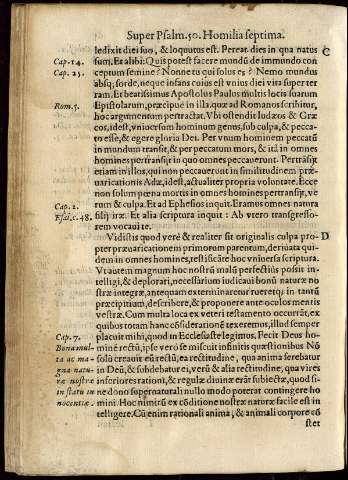 Super Psalm. 50. Homilia septima.
ledixit diei suo, & loquutus est. Pereat dies in qua natus
C
Cap. 14.
sum. Et alibi: Quis potest facere mundũ de immundo con
Cap. 25.
ceptum semine? Nonne tu qui solus es? Nemo mundus
absq; sorde, neque infans cuius est vnius diei vita super ter
ram. Et beatissimus Apostolus Paulus multis locis suarum
Rom. 5.
Epistolarum, præcipuè in illa, quæ ad Romanos scribitur,
hoc argumentum pertractat. Vbi ostendit Iudæos & Græ
cos, idest, vniuersum hominum genus, sub culpa, & pecca-
to esse, & egere gloria Dei. Per vnum hominem peccatũ
in mundum transit, & per peccatum mors, & itâ in omnes
homines pertransijt in quo omnes peccauerunt. Pertrãsijt
etiam in illos, qui non peccauerunt in similitudinem præ-
uaricationis Adæ, idest, actualiter propria voluntate. Ecce
non solum pœna mortis in omnes homines pertransijt, ve
Cap. 2.
rum & culpa. Et ad Ephesios inquit. Eramus omnes natura
Esai. c. 48.
filij iræ. Et alia scriptura inquit: Ab vtero transgresso-
rem vocaui te.
Vidistis quod verè & realiter sit originalis culpa pro-
D
pter præuaricationem primorum parentum, deriuata qui-
dem in omnes homines, testificãte hoc vniuersa scriptura.
Vt autem magnum hoc nostrũ malũ perfectiùs possit in-
telligi, & deplorari, necessarium iudicaui bonũ naturæ no
stræ integræ, antequam exterminaretur rueretq; in tantũ
præcipitium, describere, & proponere ante oculos mentis
vestræ. Cum multa loca ex veteri testamento occurrãt, ex
quibus totam hanc cõsiderationẽ texeremus, illud semper
Cap. 7.
placuit mihi, quod in Ecclesiaste legimus, Fecit Deus ho-
Bona mul
minẽ rectũ, ipse verò se miscuit infinitis quæstionibus Nõ
ta ac ma-
solũ creauit eũ rectũ, ea rectitudine, qua anima serebatur
gna natu-
in Deũ, & subdebatur ei, verũ & alia rectitudine, qua vires
ræ nostræ
inferiores rationi, & regulæ diuinæ erãt subiectæ, quod si-
in statu in
ne dono supernaturali nullo modo poterat contingere ho
nocentiæ.
mini. Hoc nimirũ ex cõditione nostræ naturæ facile est in
telligere. Cũ enim rationali anima, & animali corpore cõ
stet